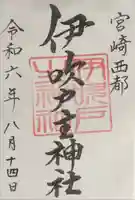 宮崎西都
伊吹戸主神社
令和六年八月十四日